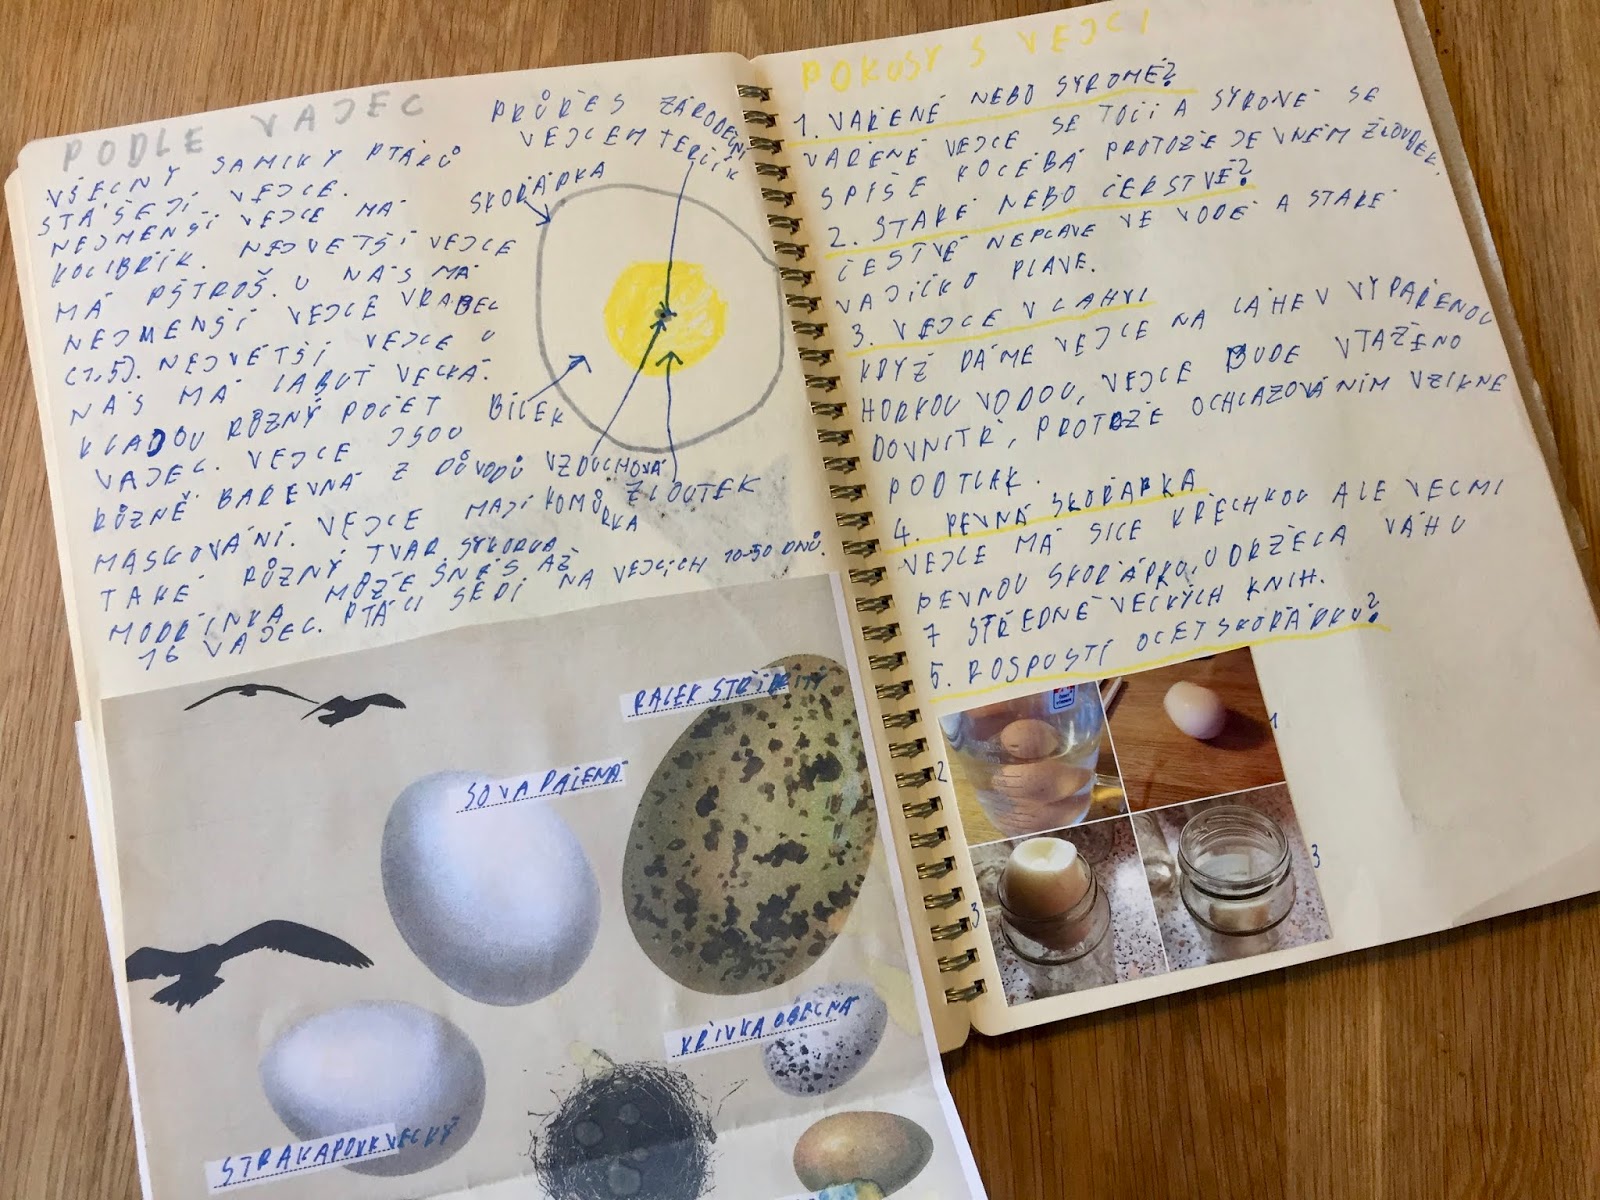 PODLE VAJEC
VŠECHNY SAMIČKY PTÁKŮ
STÁŠEJÍ VEJCE.
NEJMENŠÍ VEJCE MÁ
KOLIBŘÍK. NEJVĚTŠÍ VEJCE
MÁ PŠTROŠ. U NÁS MÁ
NEJMENŠÍ VEJCE VRABEC
(1,5). NEJVĚTŠÍ VEJCE U
NÁS MÁ LABUŤ VELKÁ.
KLADOU RŮZNÝ POČET
VAJEC. VEJCE JSOU
RŮZNĚ BAREVNÁ Z DŮVODŮ
MASKOVÁNÍ. VEJCE MAJÍ
TAKÉ RŮZNÝ TVAR. SÝKORKA
MODŘINKA MŮŽE SNÉS AŽ
16 VAJEC. PTÁCI SEDÍ NA VEJCÍCH 10-50 DNŮ.
PRŮŘES
VEJCEM
ZÁRODEČNÍ
TERČÍK
SKOŘÁPKA
BÍLEK
VZDUCHOVÁ
KOMŮRKA
ŽLOUTEK
RALEK STŘÍBRITÝ
SOVA PÁLENÁ
KŘIVKA OBECNÁ
STRAKAPOUK VELKÝ
POKUSY S VEJCI
1. VAŘENÉ NEBO SYROVÉ?
VAŘENÉ VEJCE SE TOČÍ A SYROVÉ SE
SPÍŠE KOLÉBÁ PROTOŽE JE V NĚM ŽLOUDEK.
2. STARÉ NEBO ČERSTVÉ?
ČESTVÉ NEPLAVE VE VODĚ A STARÉ
VAJÍČKO PLAVE.
3. VEJCE V LAHVI
KDYŽ DÁME VEJCE NA LÁHEV VYPAŘENOU
HORKOU VODOU, VEJCE BUDE VTAŽENO
DOVNITŘ, PROTOŽE OCHLAZOVÁNÍM VZIKNE
PODTLAK.
4. PEVNÁ SKOŘÁPKA
VEJCE MÁ SICE KŘECHKOU ALE VELMI
PEVNOU SKOŘÁPKU, UDRŽELA VÁHU
7 STŘEDNĚ VELKÝCH KNIH.
5. ROSPUSTÍ OCET SKOŘÁPKU?
2
1
3
3